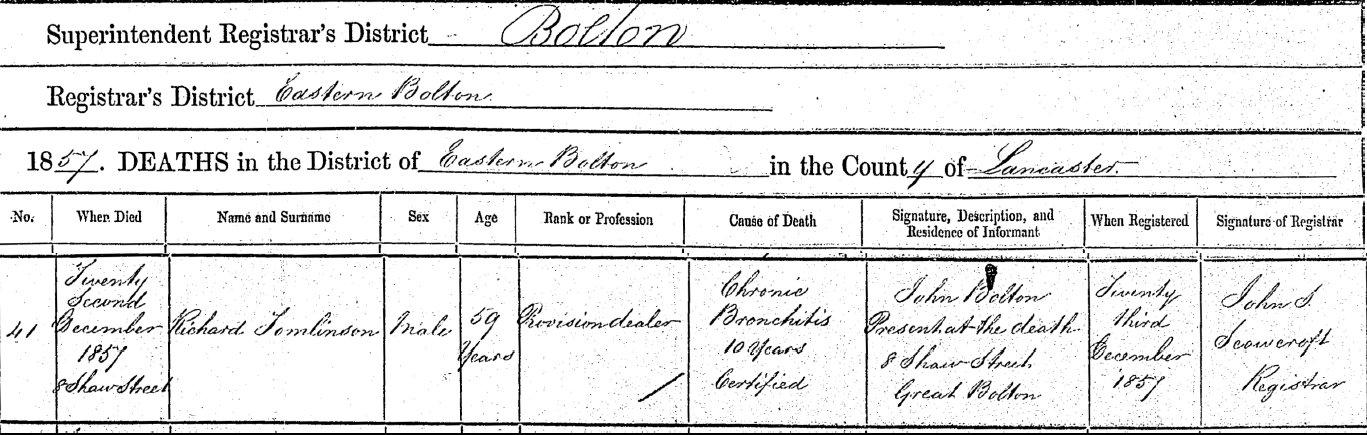 Superintendent Registrar's District Bolton
Registrar's District Eastern Bolton.
1857. DEATHS in the District of Eastern Bolton in the County of Lancaster.
No. When Died Name and Surname Sex Age Rank or Profession Cause of Death Signature, Description, and Residence of Informant When Registered Signature of Registrar
41
Twenty
Second
December
1857
8 Shaw Street
Richard Tomlinson
Male
59
Years
Provision dealer
Chronic
Bronchitis
10 Years
Certified
John Bolton
Present at the death
8 Shaw Street
Great Bolton
Twenty
third
December
1857
John S.
Scowcroft
Registrar